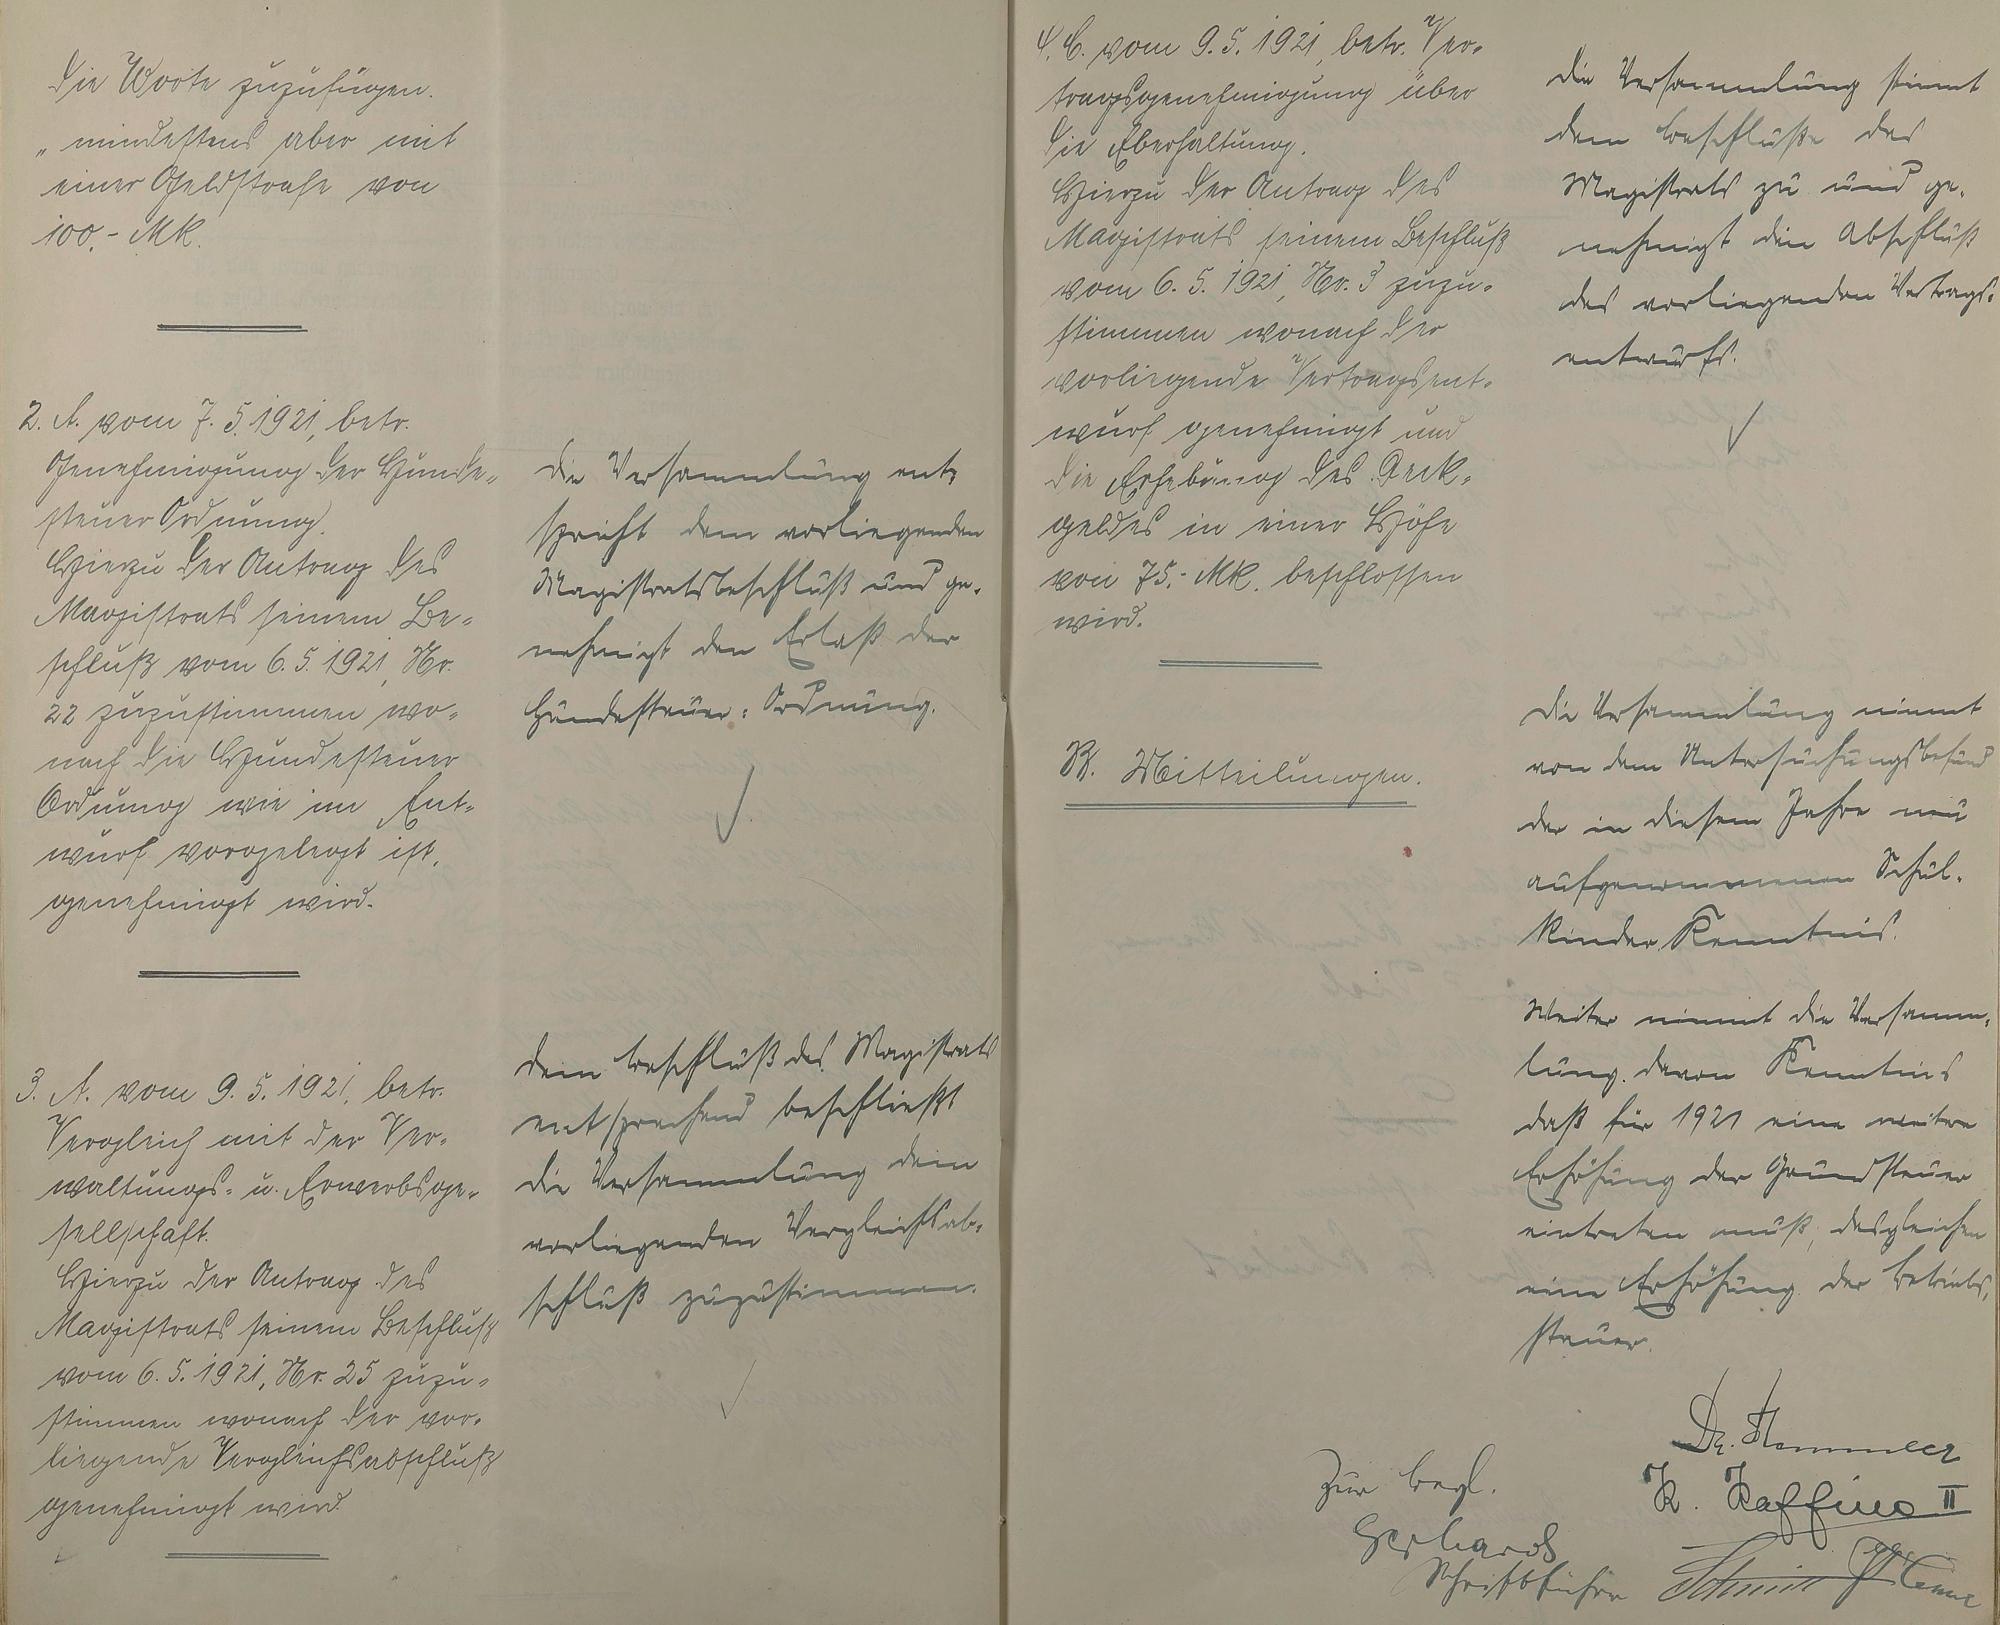 die Worte zuzufügen.
„mindestens aber mit
einer Geldstrafe von
100,- Mk.
2. A. vom 7. 5. 1921, betr.
Genehmigung der Hunde-
steuer Ordnung.
Hierzu der Antrag des
Magistrats seinem Be-
schluß vom 6. 5. 1921, Nr.
22 zuzustimmen wo-
nach die Hundesteuer
Ordnung wie im Ent-
wurf vorgelegt ist,
genehmigt wird.
Die Versammlung ent-
spricht dem vorliegenden
Magistratsbeschluß und ge-
nehmigt den Erlaß der
Hundesteuer-Ordnung.
3. A. vom 9. 5. 1921, betr.
Vergleich mit der Ver-
waltungs- u. Erwerbsge-
sellschaft.
Hierzu der Antrag des
Magistrats seinem Beschluß
vom 6. 5. 1921, Nr. 25 zuzu-
stimmen wonach der vor-
liegende Vergleichsabschluß
genehmigt wird.
Dem Beschluß des Magistrats
entsprechend beschließt
die Versammlung dem
vorliegenden Vergleichsab-
schluß zuzustimmen.
vom 9. 5. 1921, betr. Ver-
tragsgenehmigung über
die Eberhaltung.
Hierzu der Antrag des
Magistrats seinem Beschluß
vom 6. 5. 1921, Nr. 3 zuzu-
stimmen wonach der
vorliegende Vertragsent-
wurf genehmigt und
die Erhebung des Deck-
geldes in einer Höhe
von 75,- Mk. beschlossen
wird.
Die Versammlung stimmt
dem Beschluße des
Magistrats zu und ge-
nehmigt den Abschluß
des vorliegenden Vertrags-
entwurfs.
B. Mitteilungen.
Die Versammlung nimmt
von dem Untersuchungsbefund
der in diesem Jahre neu
aufgenommenen Schul-
kinder Kenntnis.
Weiter nimmt die Versamm-
lung davon Kenntnis
daß für 1921 eine weitere
Erhöhung der Grundsteuer
eintreten muß, desgleichen
eine Erhöhung der Betriebs-
steuer.
Dr.
K. Kaffine II
Zur Begl.
Gerhards
Schriftführer
Schmitt